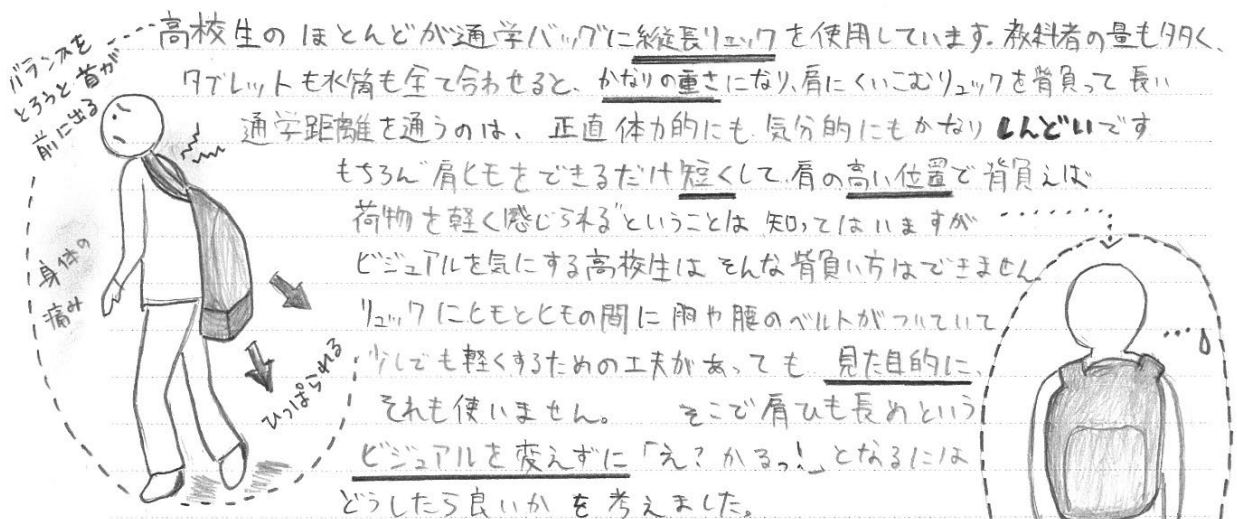 高校生のほとんどが通学バッグに縦長リュックを使用しています。教科者の量も多く、
タブレットも水筒も全て合わせると、かなりの重さになり、肩にくいこむリュックを背負って長い
通学距離を通うのは、正直体力的にも気分的にもかなりしんどいです
もちろん"肩ヒモをできるだけ短くして、肩の高い位置で背負えば
荷物を軽く感じられる"ということは知ってはいますが
ビジュアルを気にする高校生はそんな背負い方はできません
リュックにヒモとヒモの間に胸や腰のベルトがついていて
少しでも軽くするための工夫があっても見た目的に、
それも使いません。 そこで肩ひも長めという
ビジュアルを変えずに「え?かるっ!」となるには
どうしたら良いかを考えました。
バランスを
とろうと首が
前に出る
身体の
痛み
ひっぱられる